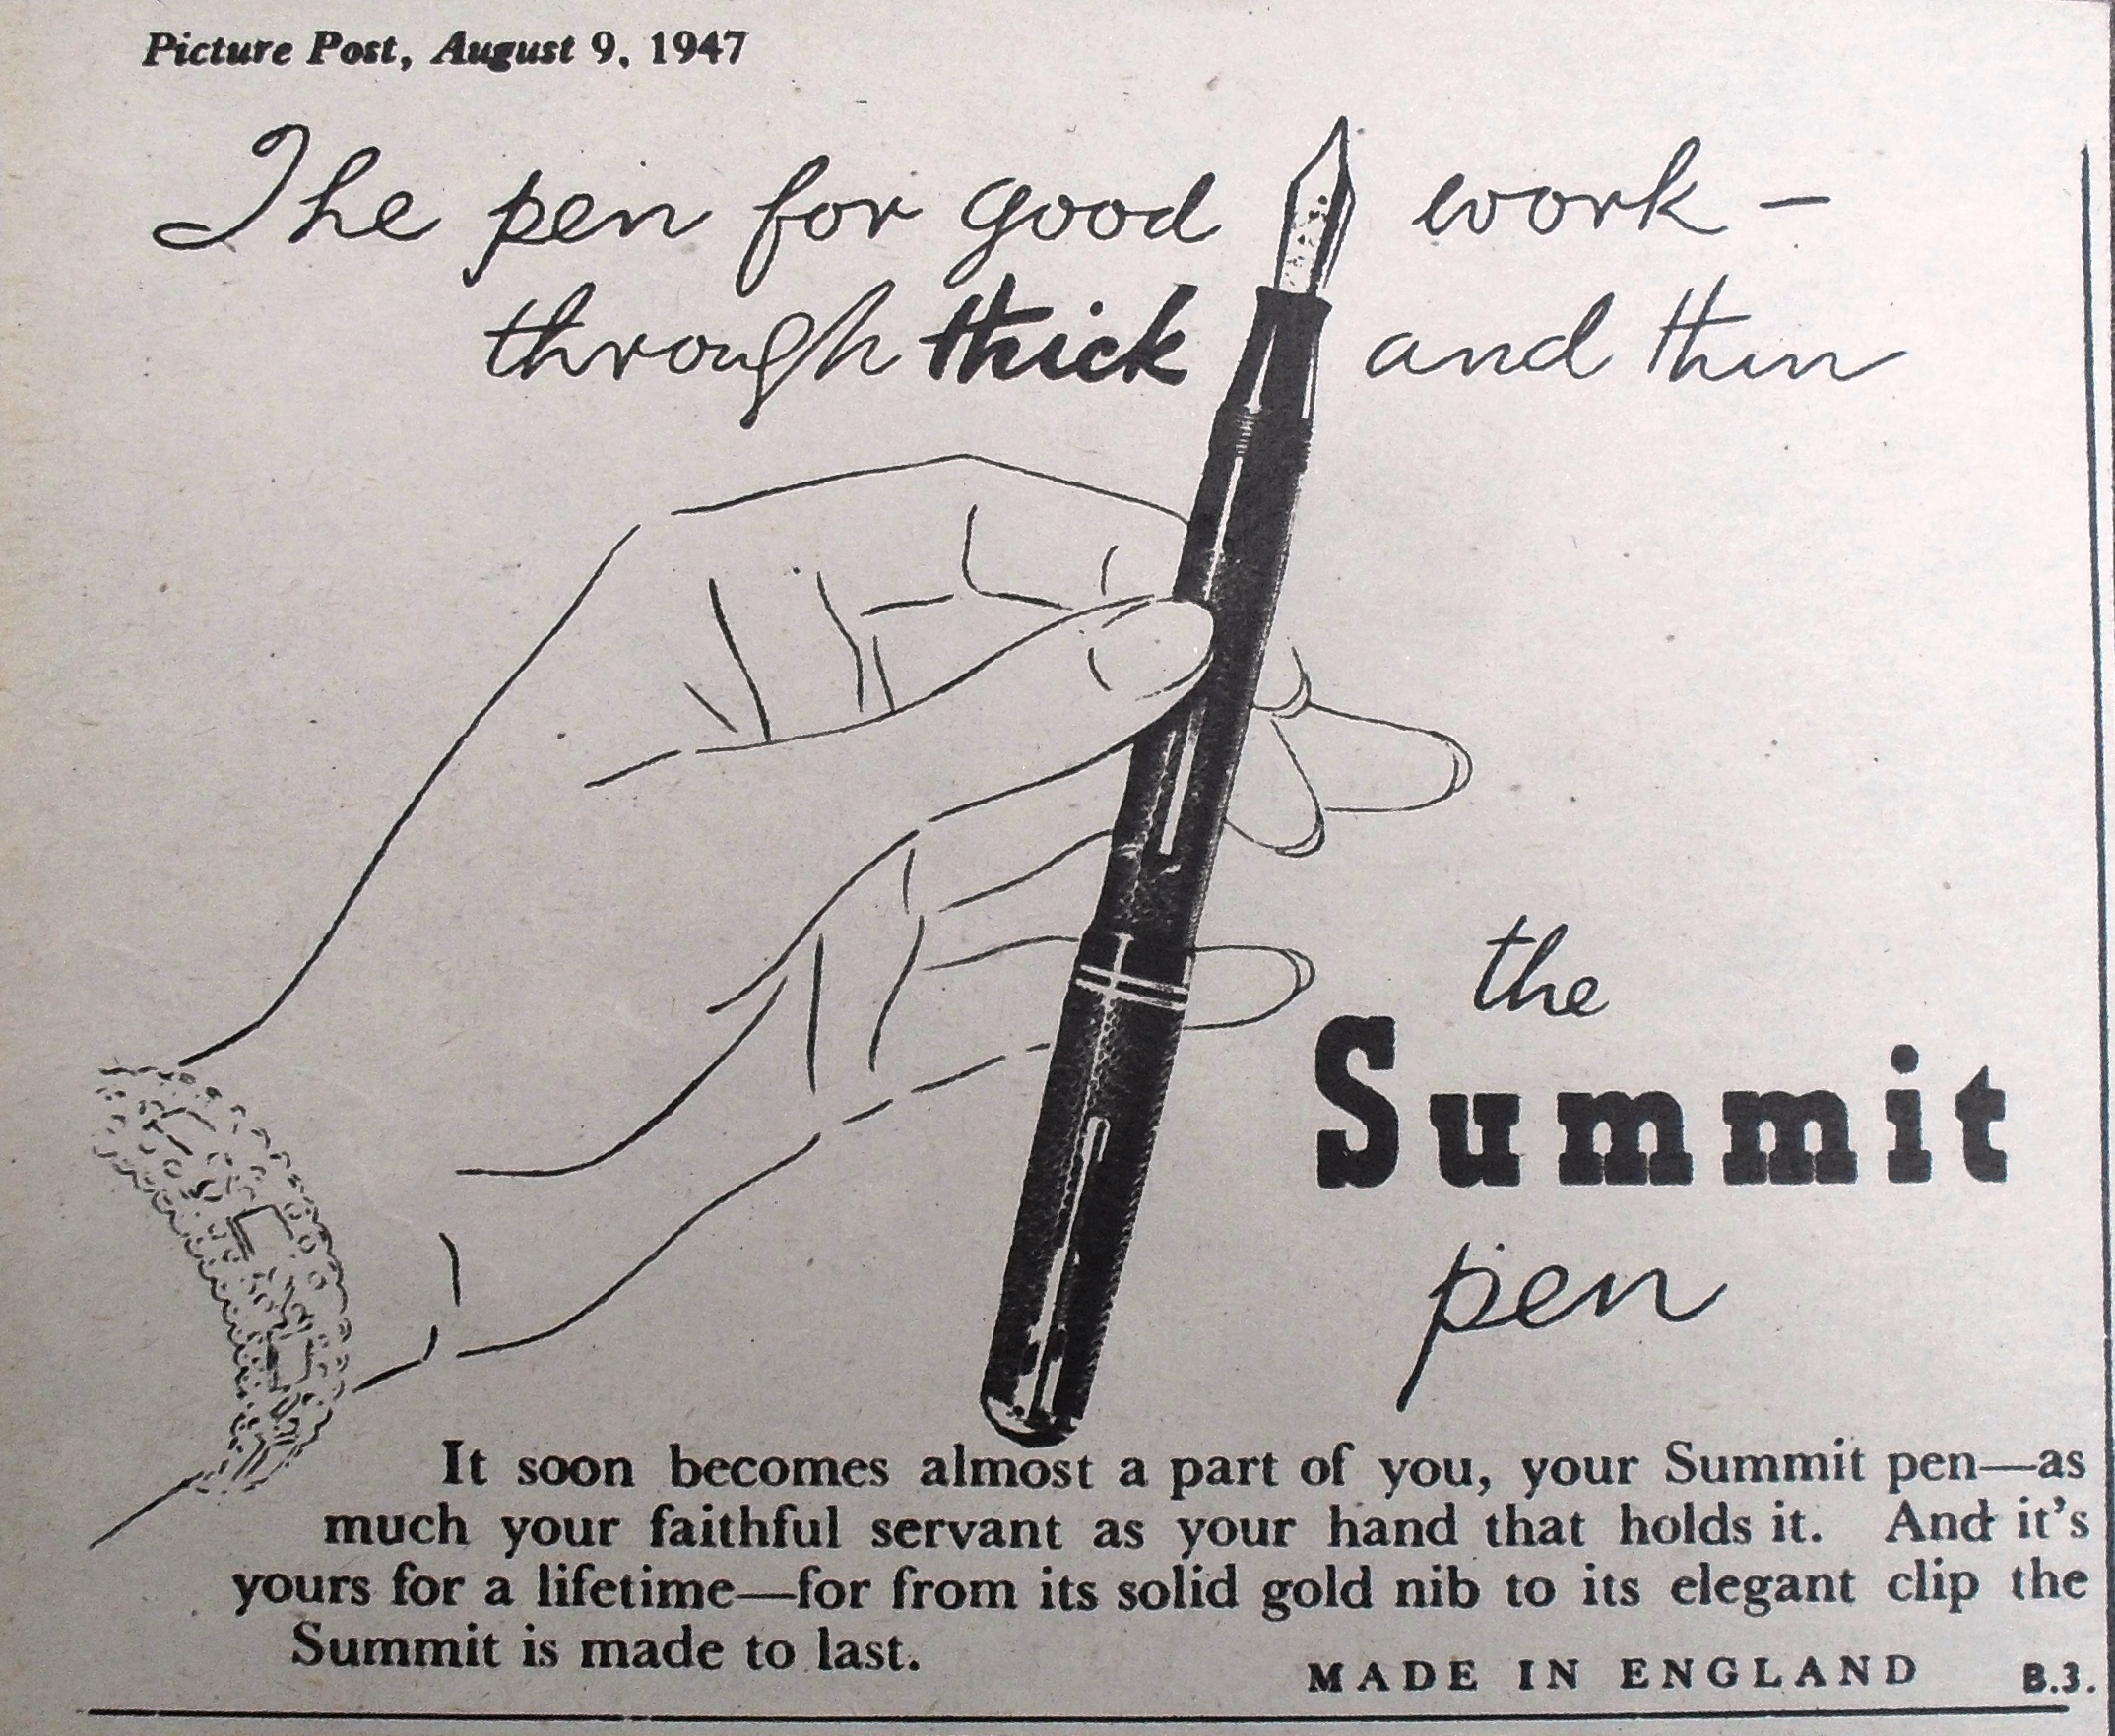 Picture Post, August 9, 1947
The pen for good work –
through thick and thin
the
Summit
pen
It soon becomes almost a part of you, your Summit pen—as
much your faithful servant as your hand that holds it. And it's
yours for a lifetime—for from its solid gold nib to its elegant clip the
Summit is made to last.
MADE IN ENGLAND B.3.